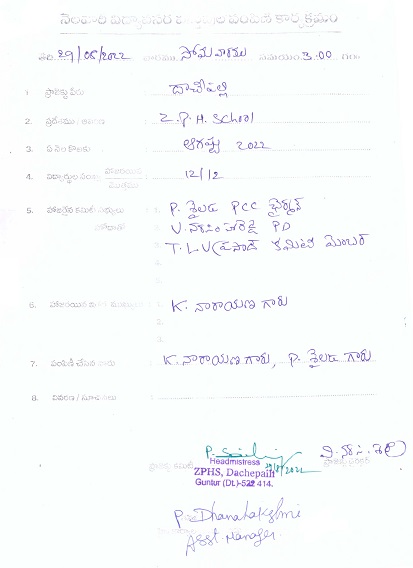 నెలవారీ విద్యావసర వస్తువుల పంపిణీ కార్యక్రమం
తేది. 29/08/2022 వారము. సోమవారము సమయం. 3.00 గం.
1. ప్రాజెక్టు పేరు దాచేపల్లి
2. ప్రదేశము / Z.P.H. School
3. ఏ నెల కొరకు ఆగష్టు 2022
4. విద్యార్థుల సంఖ్య హాజరయిన / మొత్తము 12/12
5. హాజరైన కమిటీ సభ్యులు 1. P. శైలజ PCC ఛైర్మన్
హోదాతో 2. V. నరసింహారెడ్డి PD
3. T. L.V ప్రసాద్ కమిటీ మెంబర్
6. హాజరయిన 1. K. నారాయణ గారు
2.
3.
7. పంపిణీ చేసిన వారు K. నారాయణ గారు, P. శైలజ గారు
8. వివరణ / సూచనలు
29/08/2022
ప్రాజెక్టు కమిటీ Headmistress
ZPHS, Dachepalli
Guntur (Dt.)-522 414.
P. Dhanalakshmi
Asst Manager.